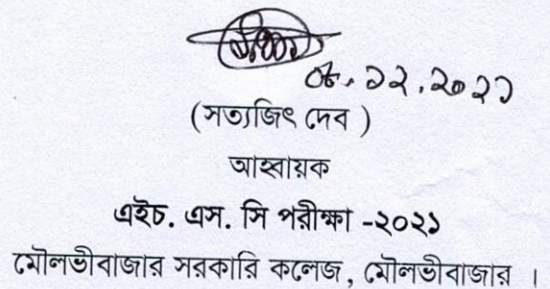 ০৮.১২.২০২১
(সত্যজিৎ দেব )
আহ্বায়ক
এইচ. এস. সি পরীক্ষা -২০২১
মৌলভীবাজার সরকারি কলেজ, মৌলভীবাজার ।